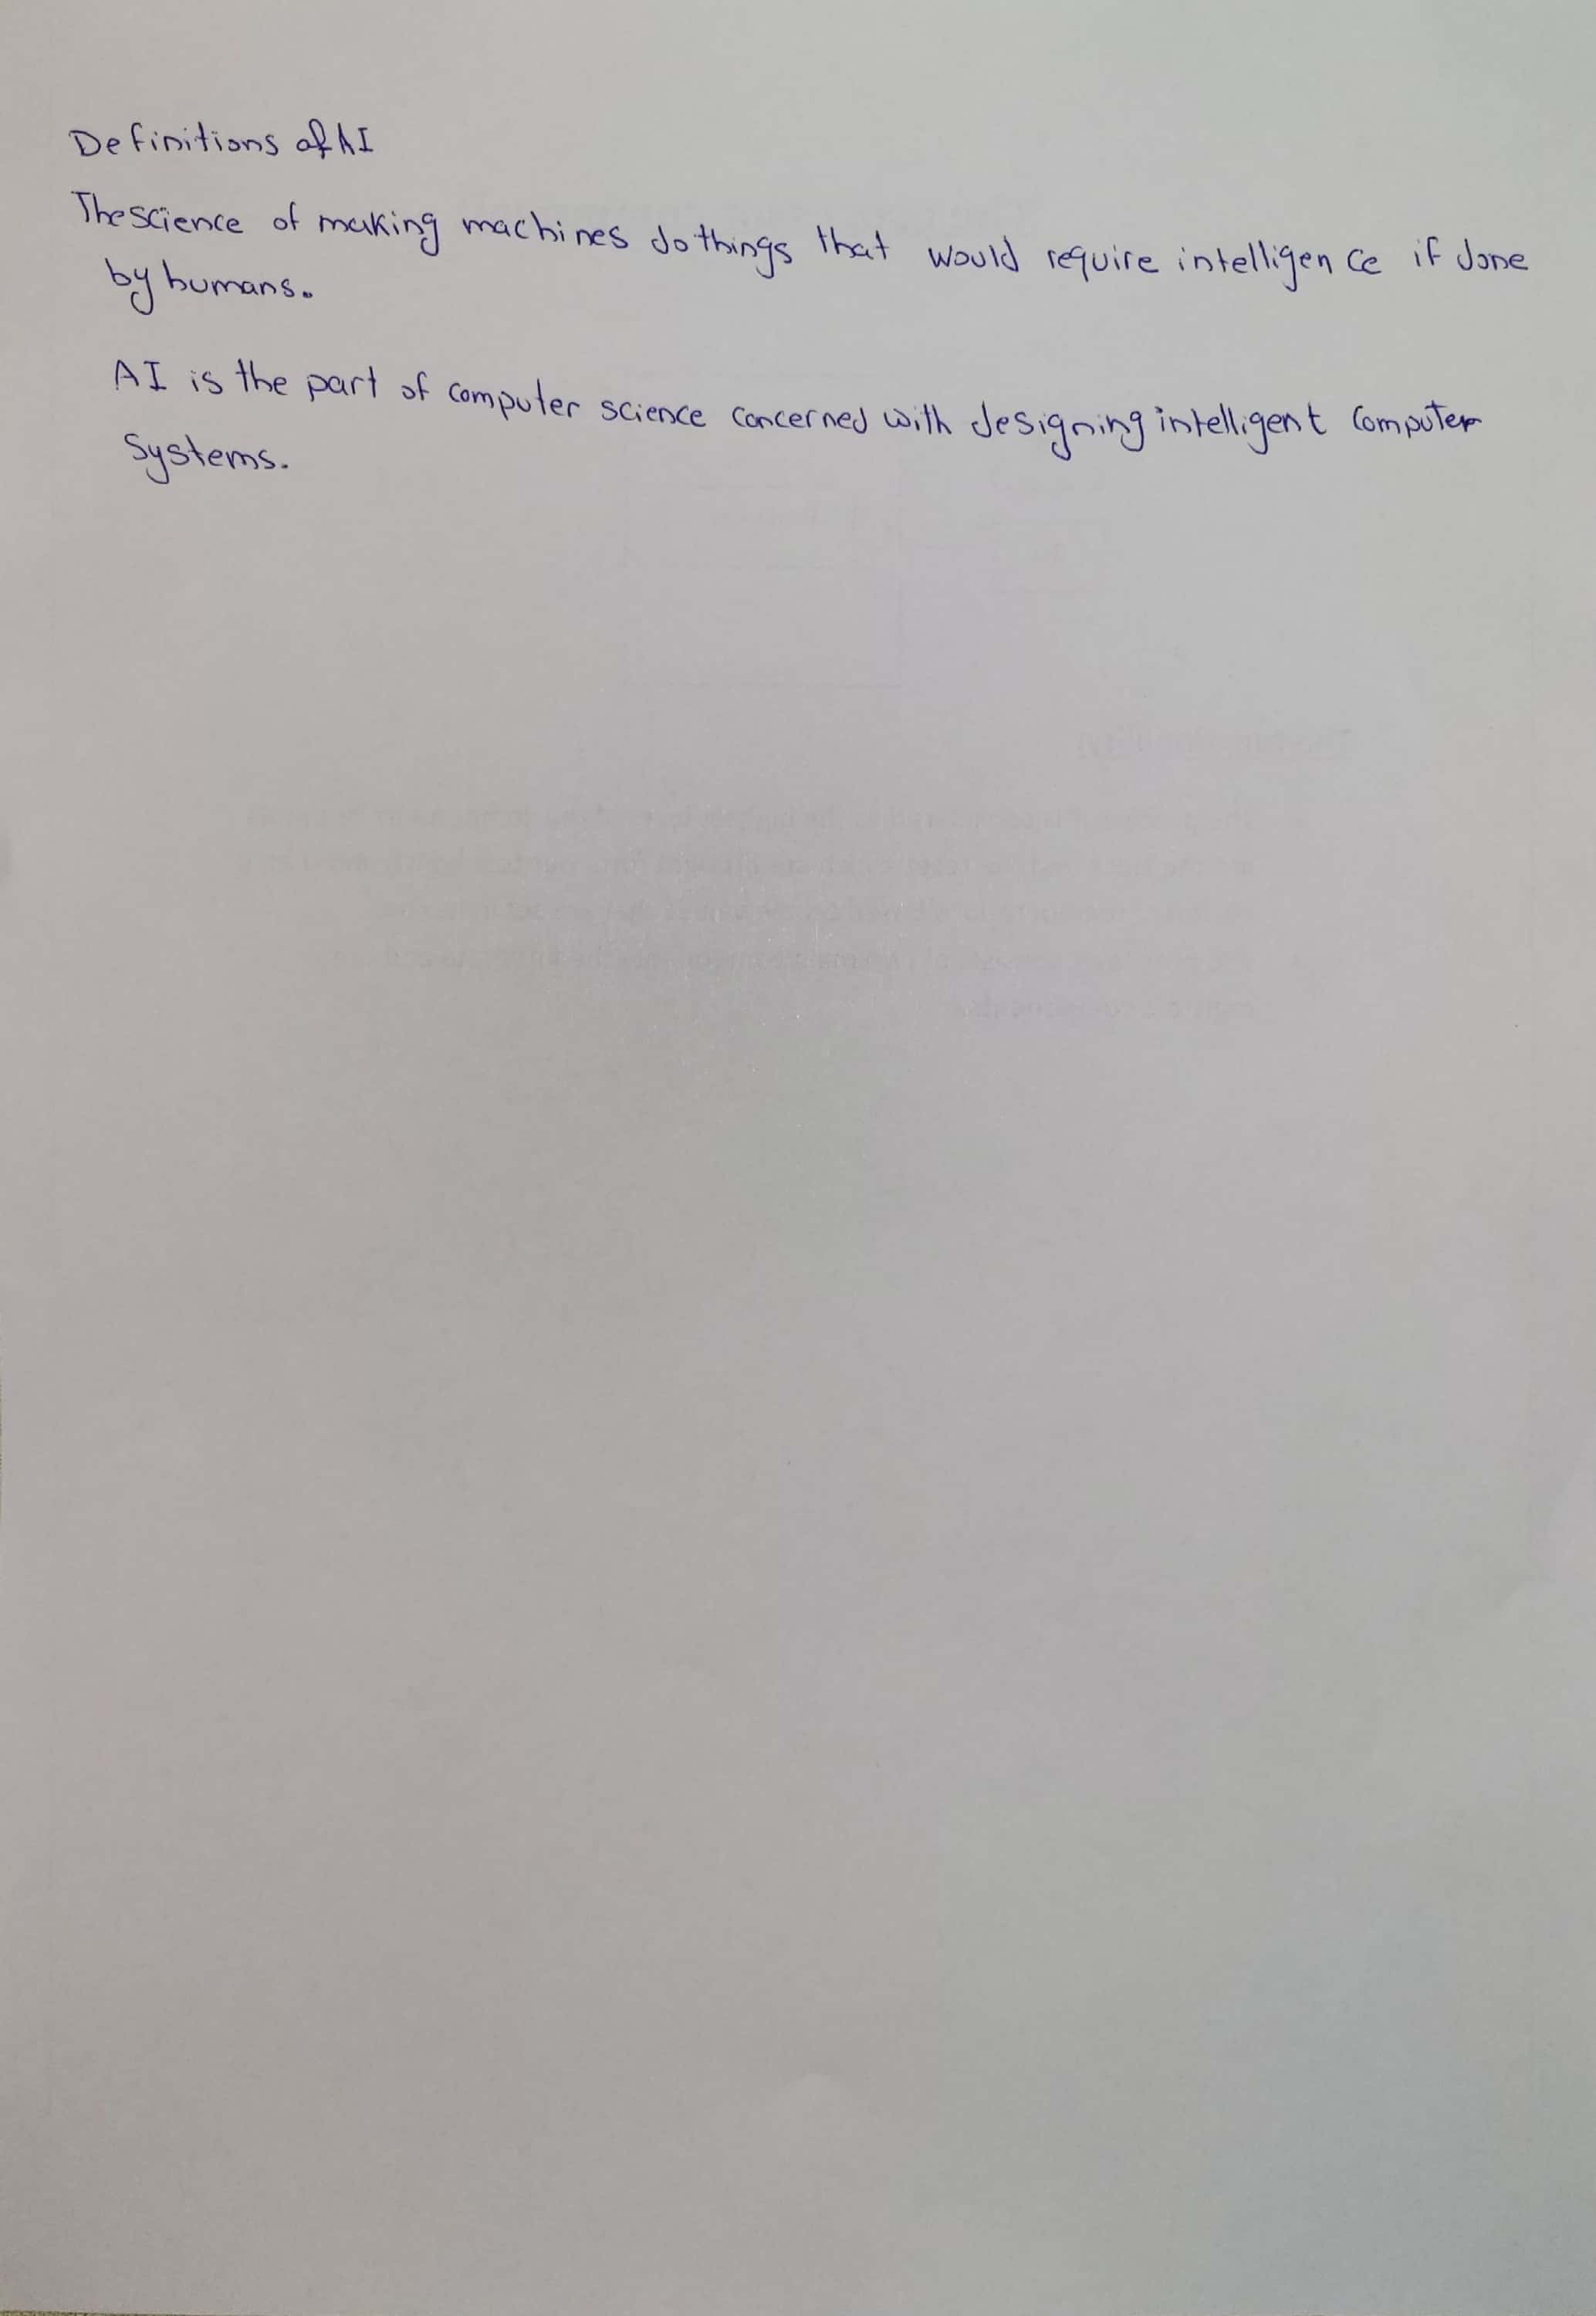 Definitions of AI
The science of making machines do things that would require intelligence if done
by humans.
AI is the part of computer science concerned with designing intelligent computer
systems.